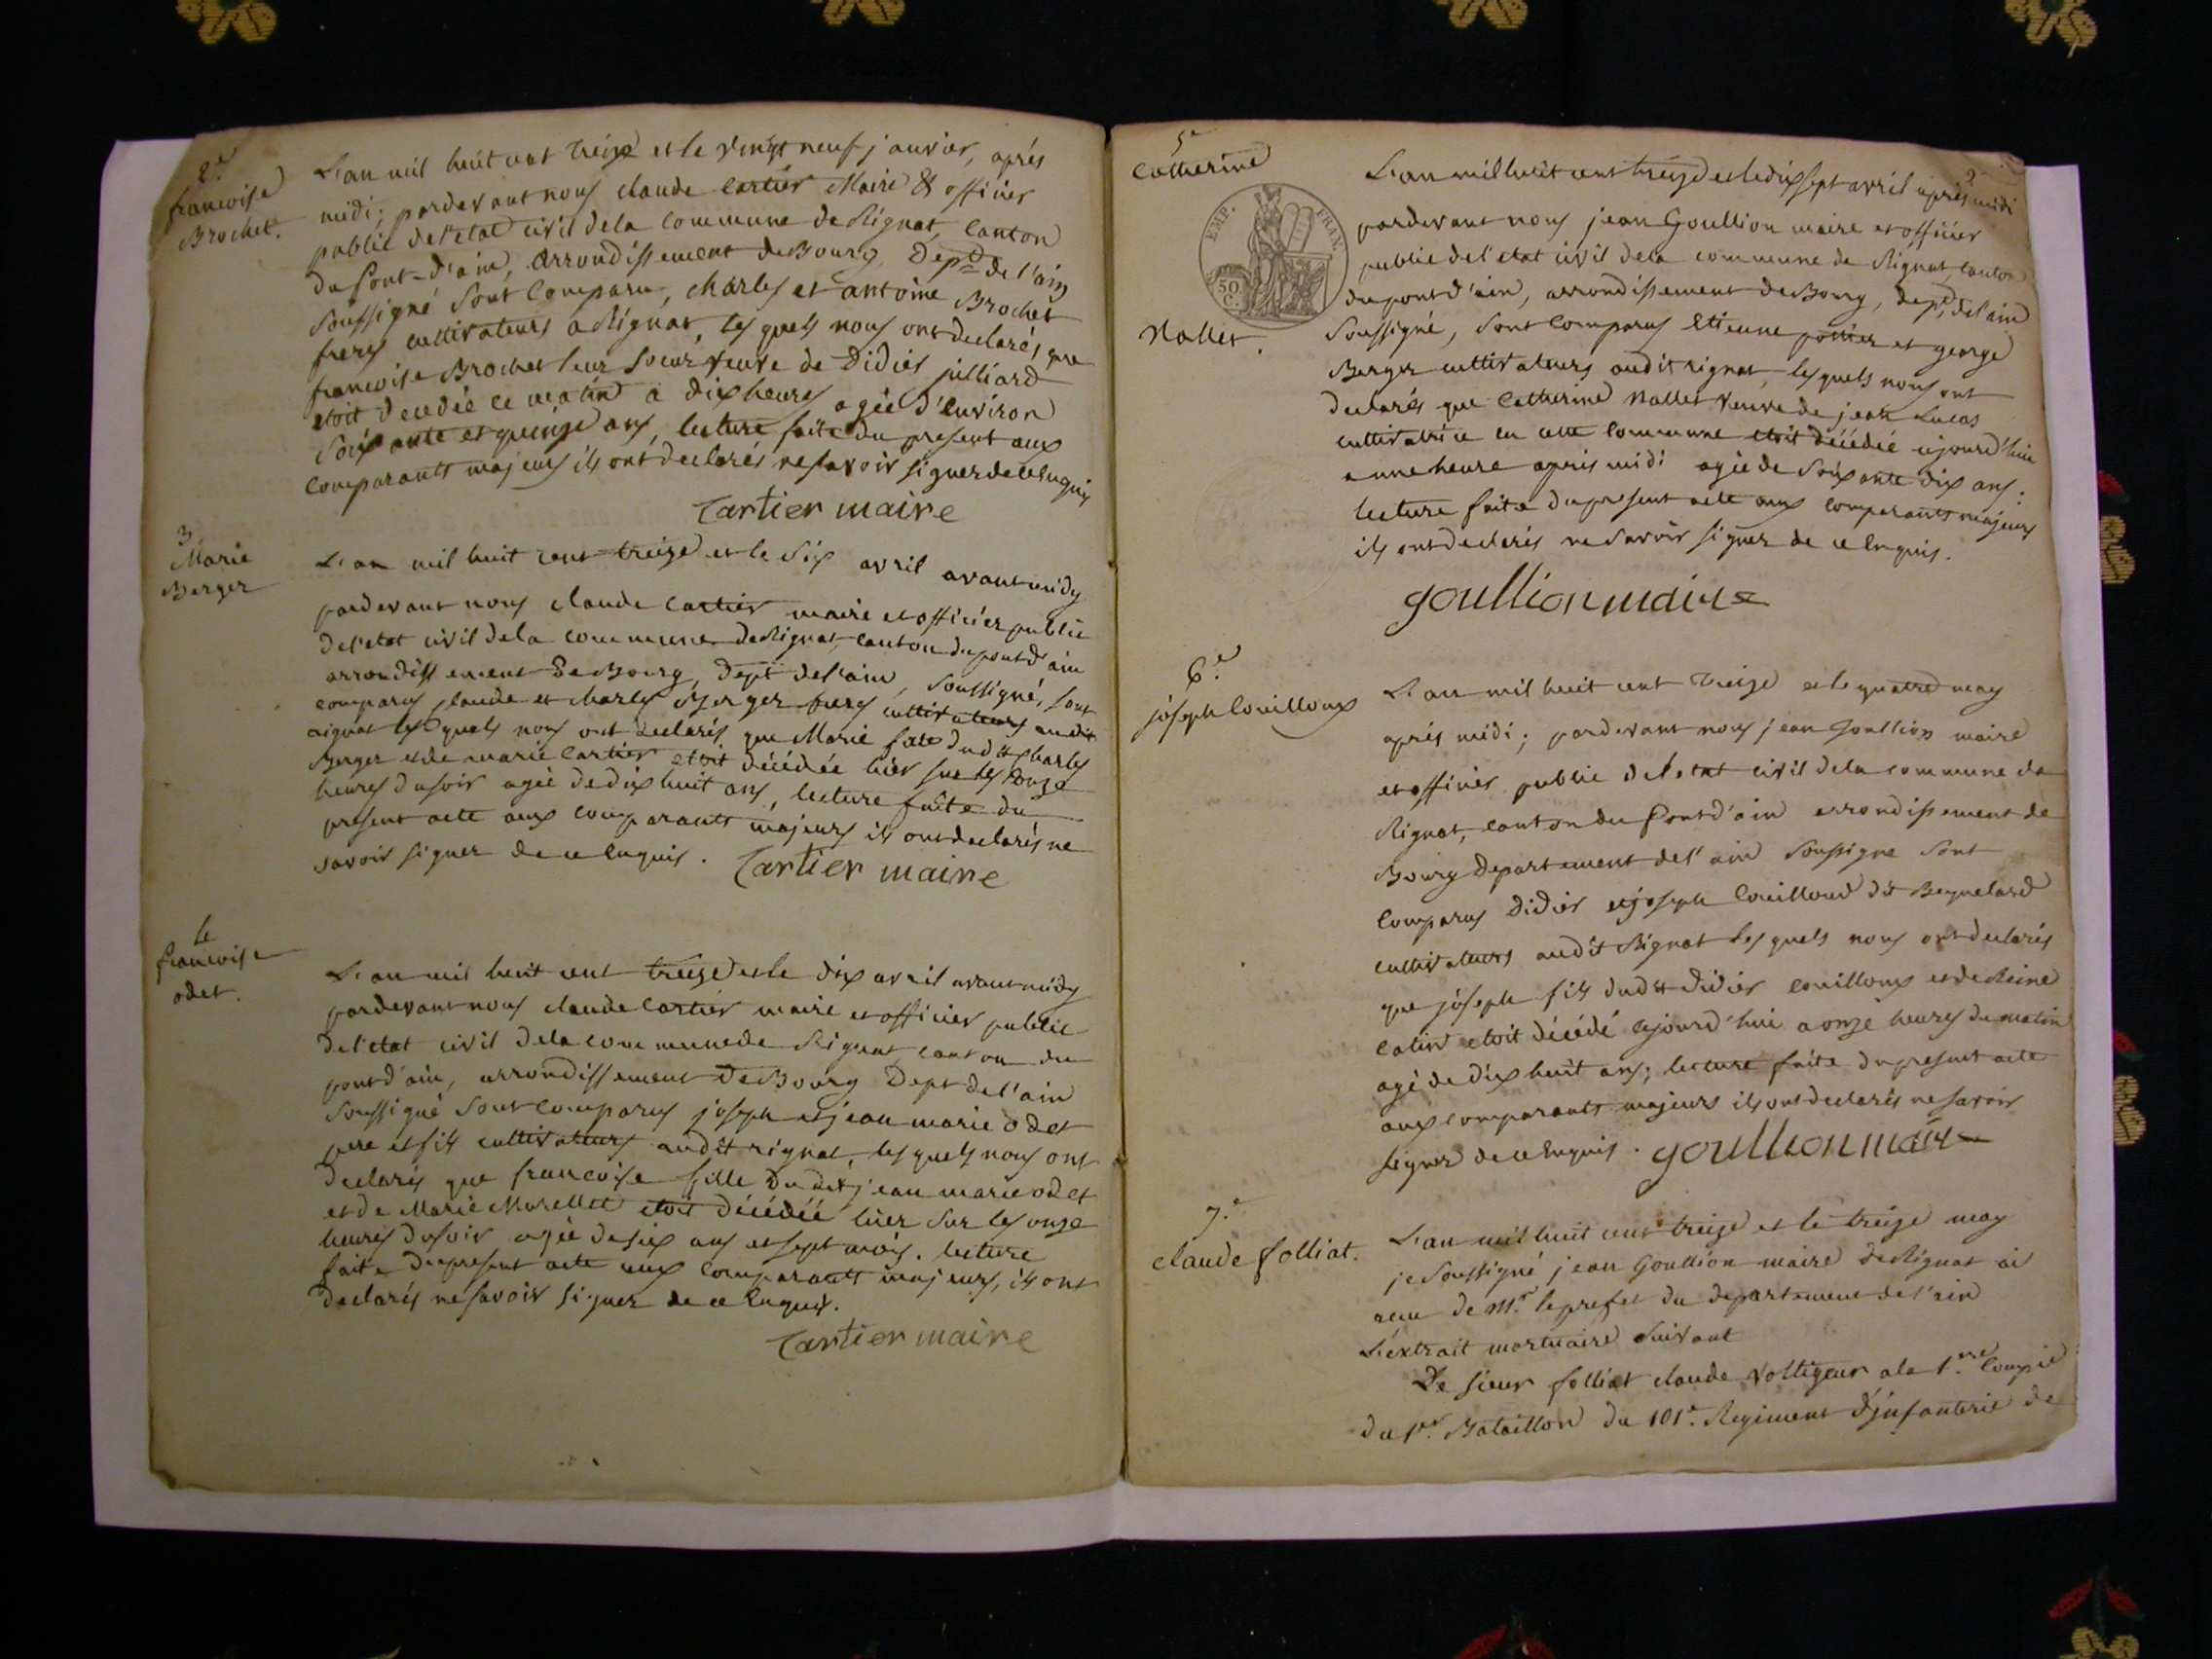 2e
francoise
Brochet.
L'an mil huit cent treize et le vingt neuf janvier, après
midi; pardevant nous claude Cartier Maire & officier
public de l'etat civil de la commune de Rignat, canton
du Pont-d'ain, arrondissement de Bourg, Dept de l'ain
soussigné sont comparu, charles et antoine Brochet
freres cultivateurs a Rignat, lesquels nous ont declarés que
francoise Brochet leur soeur veuve de Didier julliard
etoit decedée ce matin a dix heures agée d'environ
soixante et quinze ans, lecture faite du present aux
comparants majeurs ils ont declarés ne savoir signer de ce enquis
Cartier maire
3.
Marie
Berger
L'an mil huit cent treize et le six avril avant midy
pardevant nous claude cartier maire et officier public
de l'etat civil de la commune de Rignat, canton du pont d'ain
arrondissement de Bourg, dept de l'ain, soussigné, sont
comparus claude et charles Berger freres cultivateurs audit
rignat lesquels nous ont declarés que Marie fille dudit charles
Berger et de marie Cartier etoit décédée hier sur les onze
heures du soir agée de dix huit ans, lecture faite du
present acte aux comparants majeurs ils ont declarés ne
savoir signer de ce enquis. Cartier maire
4e
francoise
odet.
L'an mil huit cent treize et le dix avril avant midy
pardevant nous claude Cartier maire et officier public
de l'etat civil de la commune de Rignat canton du
pont d'ain, arrondissement de Bourg Dept de l'ain
soussigné sont comparus joseph et jean marie odet
pere et fils cultivateurs audit rignat, lesquels nous ont
declarés que francoise fille dudit jean marie odet
et de Marie Morellet etoit décédée hier sur les onze
heures du soir agée de six ans et sept mois. lecture
faite du present acte aux comparants majeurs, ils ont
declarés ne savoir signer de ce enquis.
Cartier maire
5e
Catherine
EMP. FRAN.
50
C.
Nallet.
2
L'an mil huit cent treize et le dix sept avril après midi
pardevant nous jean Goullion maire et officier
public de l'etat civil de la commune de Rignat canton
du pont d'ain, arrondissement de Bourg, dept de l'ain
soussigné, sont comparus Etienne potier et george
Berger cultivateurs audit rignat, lesquels nous ont
declarés que Catherine Nallet veuve de jean Lucas
cultivatrice en cette commune etoit décédée cejourd'hui
a une heure apris midi agée de soixante dix ans.
lecture faite du present acte aux comparants majeurs
ils ont declarés ne savoir signer de ce enquis.
goullion maire
6e
joseph Couilloux
L'an mil huit cent treize et le quatre may
après midi; pardevant nous jean Goullion maire
et officier public de l'etat civil de la commune de
Rignat, canton du Pont d'ain errondissement de
Bourg departement de l'ain soussigne sont
comparus Didier et joseph Couilloud dit Beynelard
cultivateurs audit Rignat lesquels nous ont declarés
que joseph fils dudit Didier couilloux et de Reine
Catin etoit décédé cejourd'hui a onze heures du matin
agé de dix huit ans; lecture faite du present acte
aux comparants majeurs ils ont declarés ne savoir
signer de ce enquis. goullion maire
7e
claude folliat.
L'an mil huit cent treize et le treize may
je soussigné jean Goullion maire de Rignat ai
recu de Mr. le prefet du departement de l'ain
L'extrait mortuaire suivant
Le sieur folliat claude voltigeur a la 1.ere Compie
du 1er. Bataillon du 101e. Regiment d'jnfanterie de